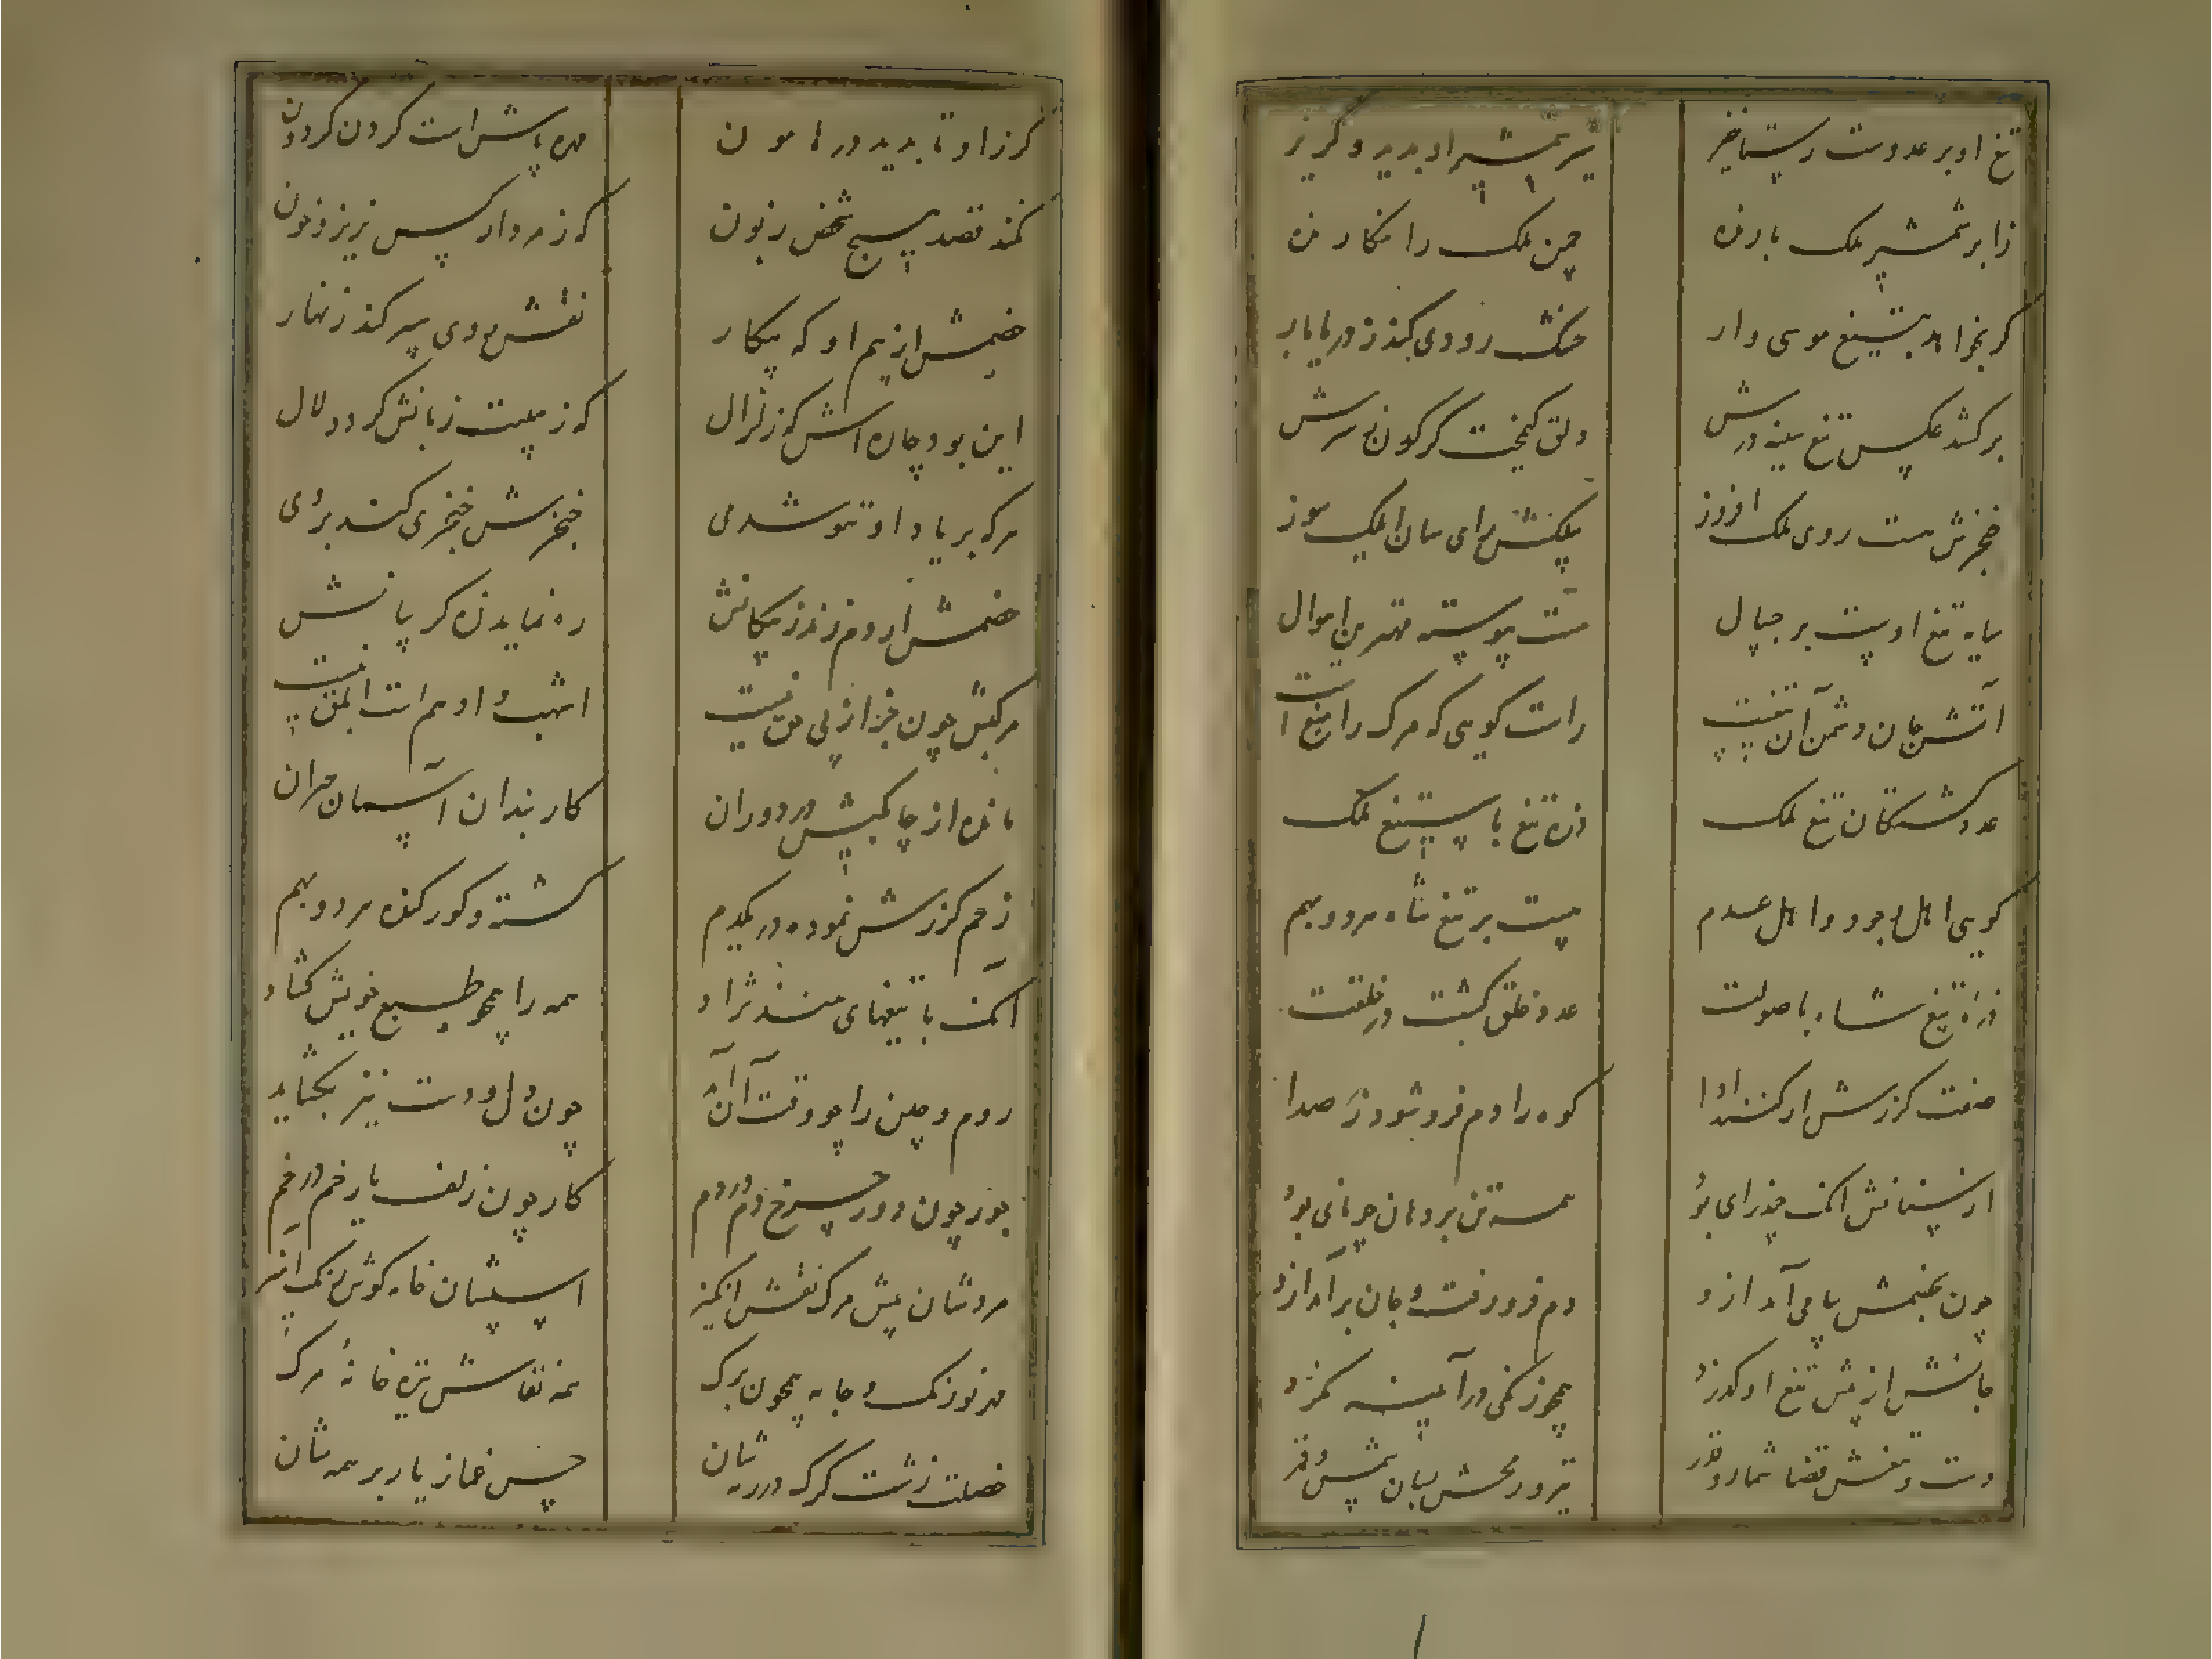 تیغ او بر عدوست رستاخیز
شیر شمشیر او بدید و گریز
زابر شمشیر ملک بارنده
چمن ملک را نگارنده
گر بخواهد بتیغ موسی وار
خشک رودی کند ز دریا بار
برکشد عکس تیغ سینه درش
دلق کیمخت کرگدن ز سرش
خنجرش هست روی ملک افروز
سایه تیغ اوست بر جیپال
هست پیوسته مهترین اموال
آتش جان دشمن آن تیغست
راست گویی که مرگ را میغ است
عدد کشتگان تیغ ملک
ذره تیغ با تیغ ملک
گویی اهل وجود و اهل عدم
هست بر تیغ شاه هر دو بهم
ذره تیغ شاه با صولت
عدد خلق گشت در خلقت
صفت گرزش ار کنند ادا
کوه را دم فرو شود ز صدا
از سنانش آنک چند رای بود
همه تن بر دهان چو نای بود
چون بخصمش پیامی آمد ازو
دم فرو رفت و جان برآمد ازو
جانش از پیش تیغ او گذرد
همچو زنگی در آینه نگرد
دست و تیغش قضا شمار و قدر
تیر و رخش بسان شمس و قمر
گرز او تا بدید در هامون
مهره پاشست گردن گردون
نکند قصد هیچ شخص زبون
که ز مردار کس نریزد خون
خصمش از بیم او گه پیکار
نقش روی سپر کند زنهار
این بود چاره اش که ز نزال
که ز هیبت زبانش گردد لال
هرکه بر یاد او تنوشد می
خنجرش خنجری کند بر وی
خصمش ار دم زند ز پیکانش
ره نماید زه گریبانش
مرکبش چون جز از پی حق نیست
اشهب و ادهم است ابلق نیست
مانده از چابکیش در دوران
کار بندان آسمان حیران
زخم گرزش نموده در یکدم
کشته و گور کنده هر دو بهم
آنک با تیغهای هند نژاد
همه را همچو طبع خویش گشاد
روم و چین را چو وقت آن آید
چون دل و دست نیز بگشاید
جوز چون دور چرخ دم در دم
کار چون زلف یار خم در خم
مردشان پیش مرگ نقش انگیز
اسپشان خانه گوش لنگ انیز
مهر نو رنگ و جامه همچون برگ
همه نقاش تیره خانهٔ مرگ
خصلت زشت گرگ در رمه شان
چشم غماز یار بر همه شان